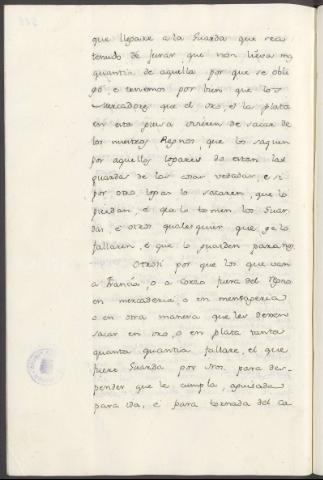 que llegaire a la Guarda que sea
tenudo de jurar que non lieva mas
quantia de aquella por que se obli
gó, e tenemos por bien que los
Mercadores que el oro, e la plata
en esta guisa ovieren de sacar de
los nuestros Regnos que los saquen
por aquellos logares do estan las
guardas de las cosas vedadas, e si
por otro logar lo sacaren, que lo
pierdan, e que lo tomen los Guar
das e otros qualesquier, que ge lo
fallaren, e que lo guarden para nos.
Otrosi por que los que van
a Francia, o a otro fuera del Regno
en mercaderia, o en mensageria
o en otra manera que les dexen
sacar en oro, o en plata tanta
quanta quantia fallare, el que
fuere Guarda por Nos. para des-
pender que le cumpla, aguisada
para ida, e para tornada del ca